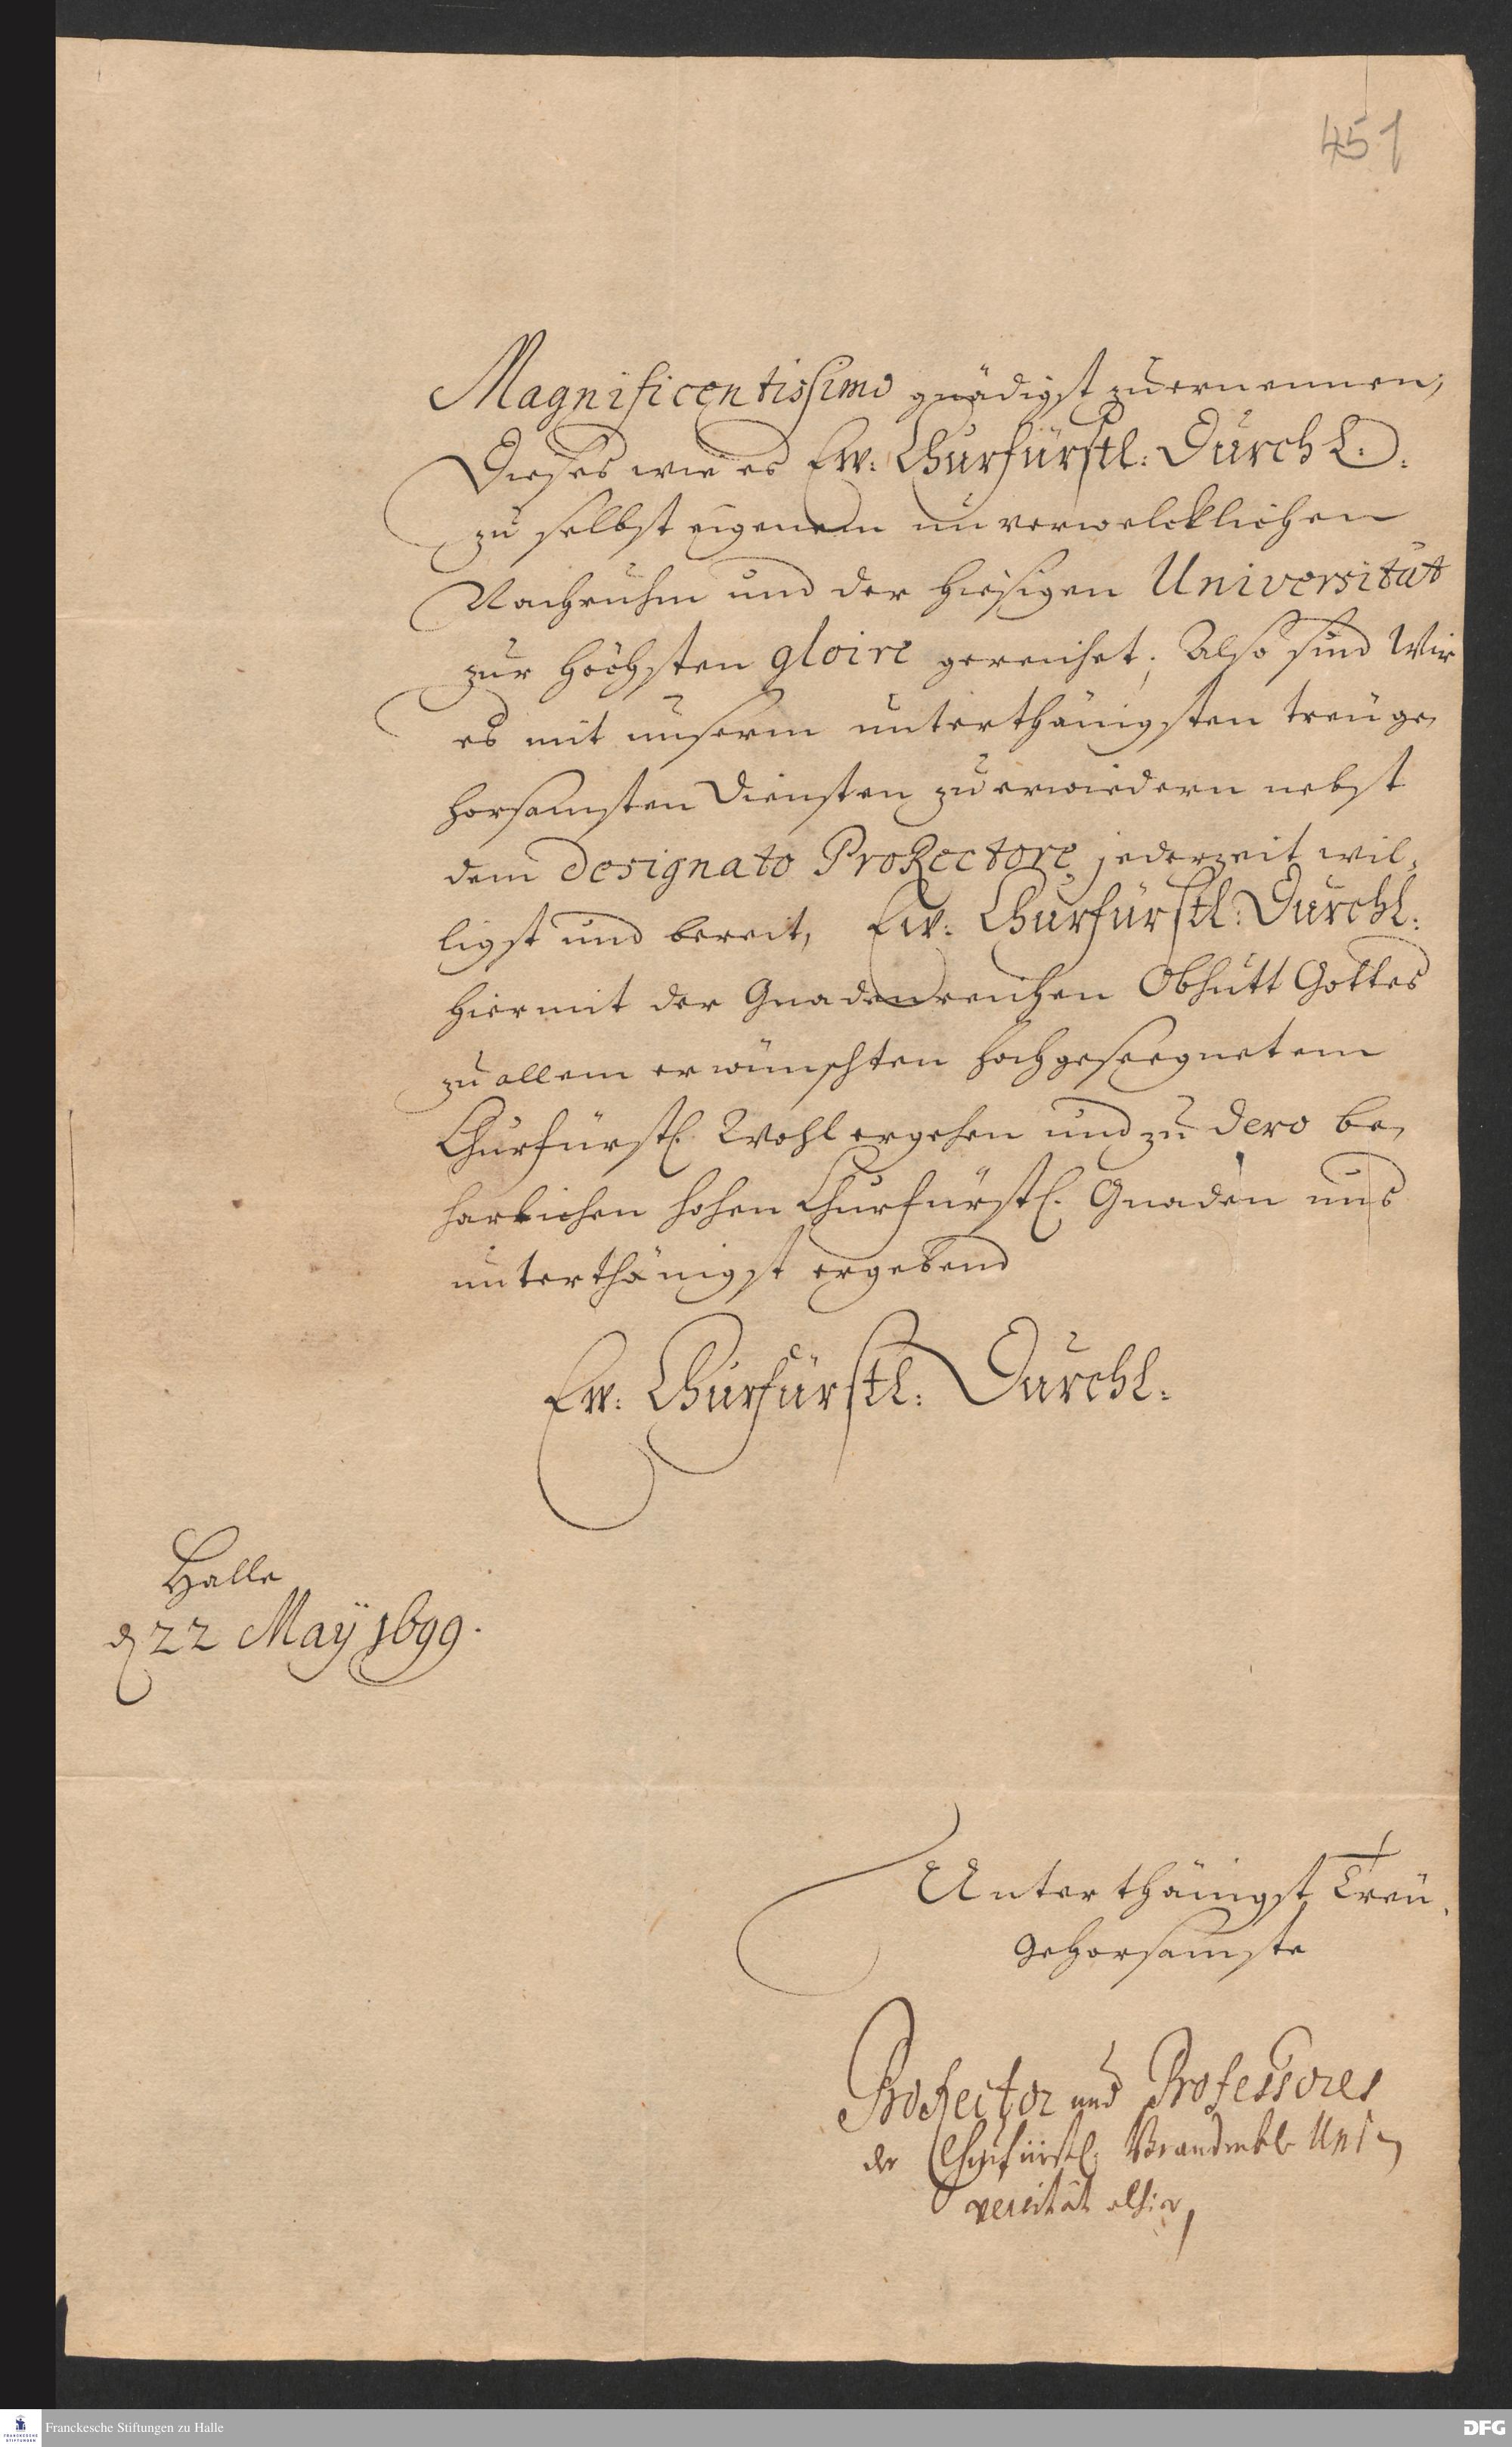 451
Magnificentissimo gnädigst zu ernennen,
Dieses wie es Ew: Churfürstl: Durchl.:
zu selbst eigenem unverwelcklichen
Nachruhm und der hiesigen Universität
zur höchsten gloire gereichet; Also sind Wir
es mit unserm unterthänigsten treu ge,
horsamsten Diensten zu erwiedern nebst
dem designato ProRectore jederzeit wil,
ligst und bereit, Ew: Churfürstl: Durchl:
hiermit der Gnadenreichen Obhutt Gottes
zu allem erwünschten hochgeseegnetem
Churfürstl. Wohlergehen und zu dero be,
harlichen hohen Churfürstl. Gnaden uns
unterthänigst ergebend
Ew: Churfürstl: Durchl:
Halle
d 22 Maÿ 1699.
Unterthänigst Treu,
gehorsamste
ProRector und Professores
der Churfürstl. Brandenb. Uni,
versität alhier,
Franckesche Stiftungen zu Halle
DFG